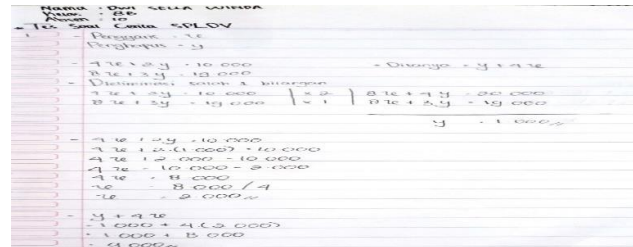 Nama : Dwi SELLA WINDA
Kelas : 8B
Absen : 10
Tes Soal Cerita SPLDV
1. - Penggaris = x
Penghapus = y
- 4x + 2y = 10.000 = Ditanya = y + 4x
8x + 3y = 19.000
- Dieliminasi salah 1 bilangan
4x + 2y = 10.000 | x 2 | 8x + 4y = 20.000
8x + 3y = 19.000 | x 1 | 8x + 3y = 19.000
y = 1.000 //
- 4x + 2y = 10.000
4x + 2.(1.000) = 10.000
4x + 2.000 = 10.000
4x = 10.000 - 2.000
4x = 8.000
x = 8.000 / 4
x = 2.000 //
- y + 4x
= 1.000 + 4.(2.000)
= 1.000 + 8.000
= 9.000 //